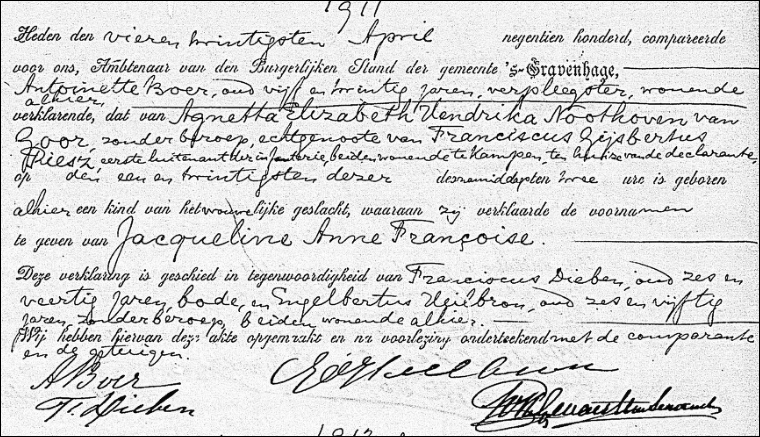 1911
Heden den vier en twintigsten April negentien honderd, compareerde
voor ons, Ambtenaar van den Burgerlijken Stand der gemeente 's-Gravenhage,
Antoinette Boer, oud vijf en twintig jaren, verpleegster, wonende
alhier,
verklarende, dat van Agnetta Elizabeth Hendrika Noothoven van
Goor, zonder beroep, echtgenoote van Franciscus Gijsbertus
eerste luitenant der infanterie, beiden wonende te Kampen, ten huize van de declarante,
op den een en twintigsten dezer des namiddags ten twee ure is geboren
alhier een kind van het vrouwelijke geslacht, waaraan zij verklaarde de voornamen
te geven van Jacqueline Anne Françoise.
Deze verklaring is geschied in tegenwoordigheid van Franciscus Dieben, oud zes en
veertig jaren, bode, en Engelbertus oud zes en vijftig
jaren, zonder beroep, beiden wonende alhier.
Wij hebben hiervan deze akte opgemaakt en na voorlezing onderteekend met de comparante
en de getuigen.
A Boer
F. Dieben